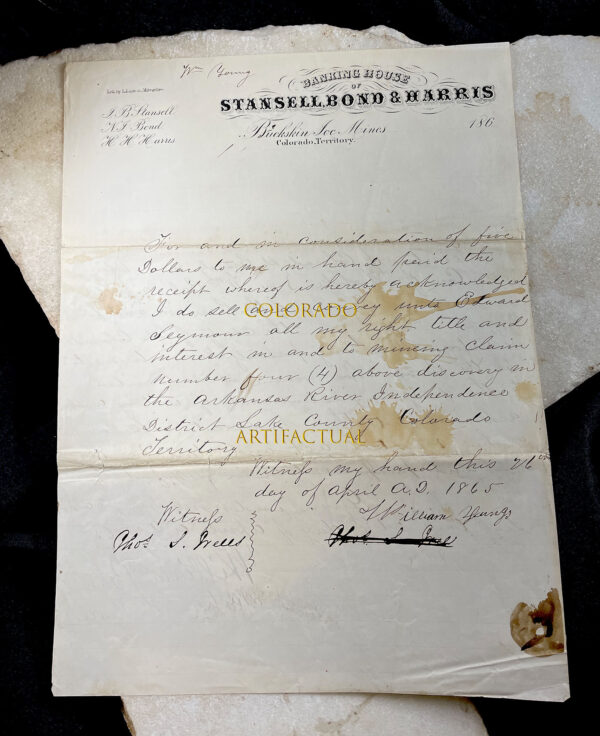 Wm Young
BANKING HOUSE
OF
STANSELL, BOND & HARRIS
J. B. Stansell.
N. J. Bond.
H. H. Harris
Buckskin Joe Mines 186
Colorado, Territory.
For and in consideration of five
Dollars to me in hand paid the
receipt whereof is hereby acknowledged
I do sell and convey unto Edward
COLORADO
Seymour all my right title and
interest in and to mining claim
number four (4) above discovery in
the Arkansas River Independence
District Lake County Colorado
ARTIFACTUAL
Territory
Witness my hand this 26
day of April A.D. 1865
Witness William Young
Thos. S. Wells Thos. S.